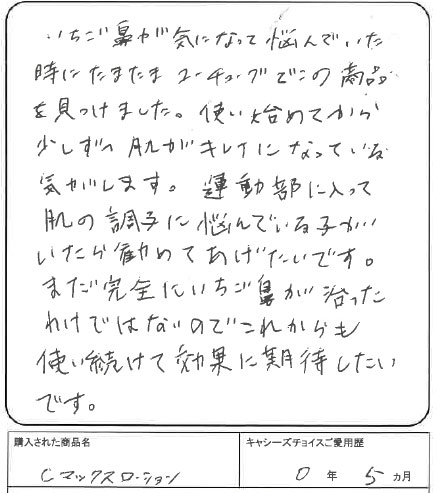 いちご鼻が気になって悩んでいた
時にたまたまユーチューブでこの商品
を見つけました。使い始めてから
少しずつ肌がキレイになっている
気がします。運動部に入って
肌の調子に悩んでいる子が
いたら勧めてあげたいです。
まだ完全にいちご鼻が治った
わけではないのでこれからも
使い続けて効果に期待したい
です。
購入された商品名
キャシーズチョイスご愛用歴
Cマックスローション
0年5ヵ月